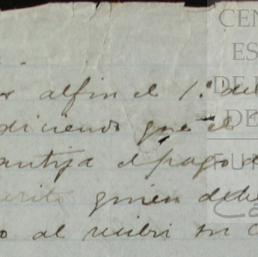 alfin el 1.º del
diciendo que el
el pago d
quien debe
o al recibir su c
CEN
ES
DE
DE
U
Ca